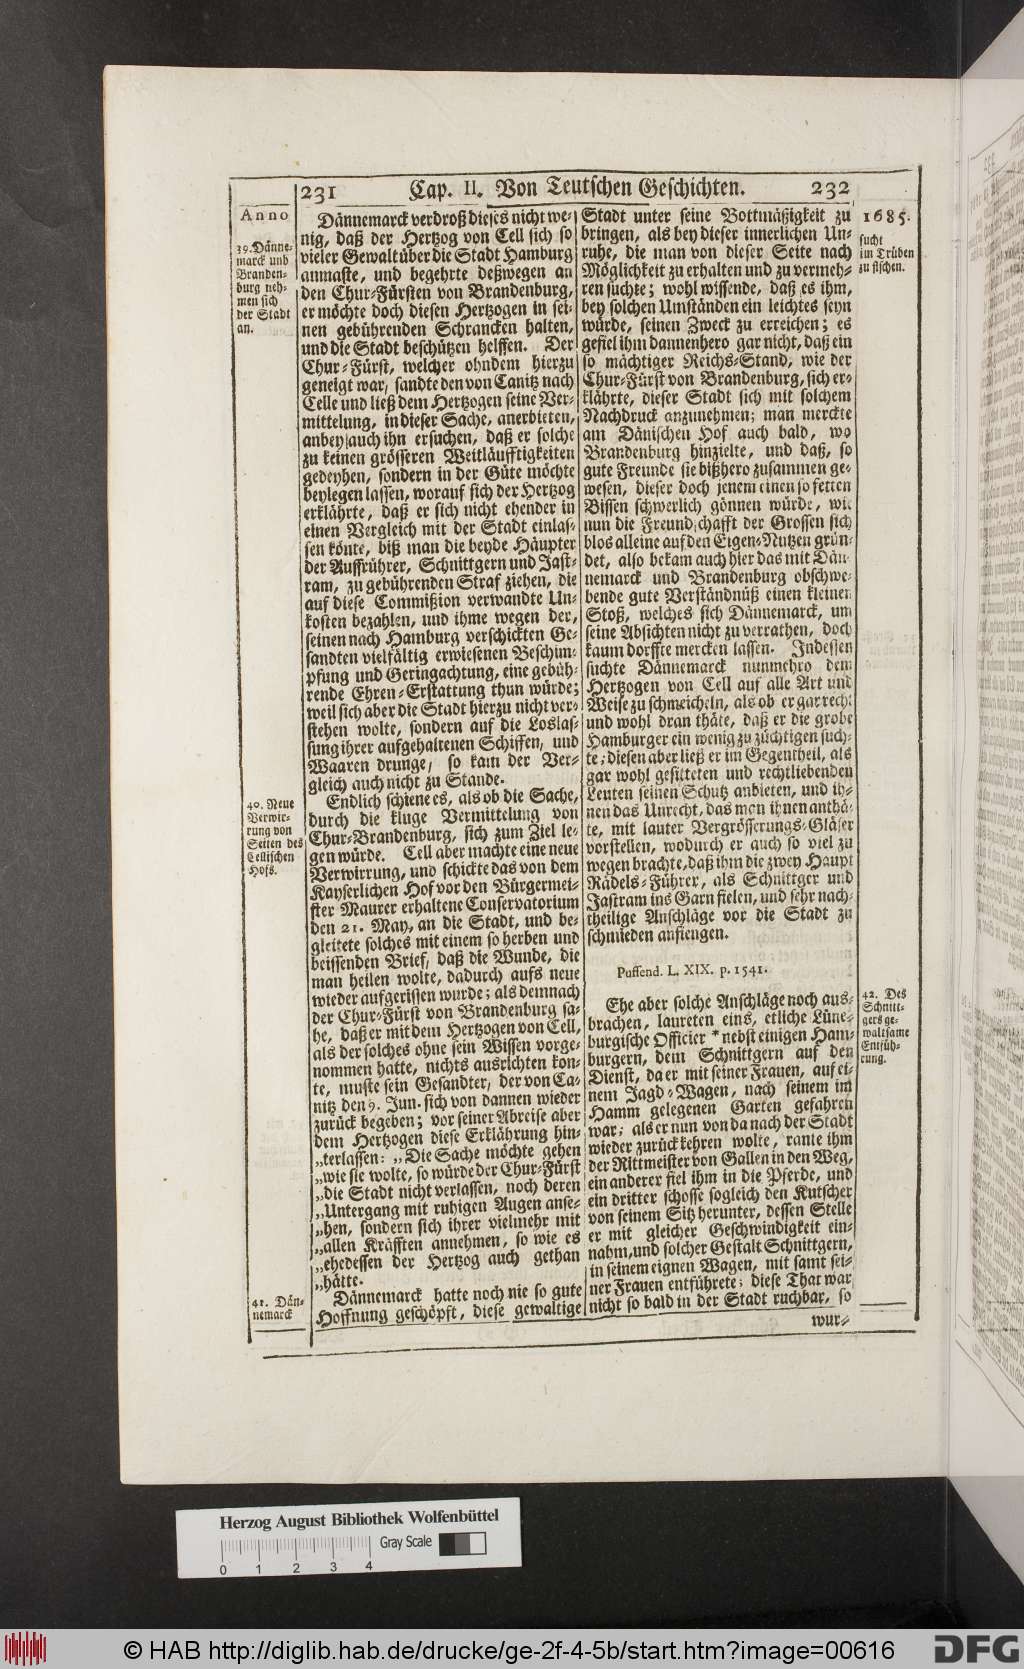 231 Cap. II. Von Teutschen Geschichten. 232
Anno
39. Dänne-
marck und
Branden-
burg neh-
men sich
der Stadt
an.
Dännemarck verdroß dieses nicht we-
nig, daß der Hertzog von Cell sich so
vieler Gewalt über die Stadt Hamburg
anmaste, und begehrte deßwegen an
den Chur-Fürsten von Brandenburg,
er möchte doch diesen Hertzogen in sei-
nen gebührenden Schrancken halten,
und die Stadt beschützen helffen. Der
Chur-Fürst, welcher ohndem hierzu
geneigt war, sandte den von Canitz nach
Celle und ließ dem Hertzogen seine Ver-
mittelung, in dieser Sache, anerbieten,
anbey auch ihn ersuchen, daß er solche
zu keinen grösseren Weitläufftigkeiten
gedeyhen, sondern in der Güte möchte
beylegen lassen, worauf sich der Hertzog
erklährte, daß er sich nicht ehender in
einen Vergleich mit der Stadt einlas-
sen könte, biß man die beyde Häupter
der Auffrührer, Schnittgern und Jast-
ram, zu gebührenden Straf ziehen, die
auf diese Commißion verwandte Un-
kosten bezahlen, und ihme wegen der,
seinen nach Hamburg verschickten Ge-
sandten vielfältig erwiesenen Beschim-
pfung und Geringachtung, eine gebüh-
rende Ehren-Erstattung thun würde;
weil sich aber die Stadt hierzu nicht ver-
stehen wolte, sondern auf die Loslas-
sung ihrer aufgehaltenen Schiffen, und
Waaren drunge, so kam der Ver-
gleich auch nicht zu Stande.
40. Neue
Verwir-
rung von
Seiten des
Cellischen
Hofs.
Endlich schiene es, als ob die Sache,
durch die kluge Vermittelung von
Chur-Brandenburg, sich zum Ziel le-
gen würde. Cell aber machte eine neue
Verwirrung, und schickte das von dem
Kayserlichen Hof vor den Bürgermei-
ster Maurer erhaltene Conservatorium
den 21. May, an die Stadt, und be-
gleitete solches mit einem so herben und
beissenden Brief, daß die Wunde, die
man heilen wolte, dadurch aufs neue
wieder aufgerissen wurde; als demnach
der Chur-Fürst von Brandenburg sa-
he, daß er mit dem Hertzogen von Cell,
als der solches ohne sein Wissen vorge-
nommen hatte, nichts ausrichten kon-
te, muste sein Gesandter, der von Ca-
nitz den 9. Jun. sich von dannen wieder
zurück begeben; vor seiner Abreise aber
dem Hertzogen diese Erklährung hin-
„terlassen: „Die Sache möchte gehen
„wie sie wolte, so würde der Chur-Fürst
„die Stadt nicht verlassen, noch deren
„Untergang mit ruhigen Augen anse-
„hen, sondern sich ihrer vielmehr mit
„allen Kräfften annehmen, so wie es
„ehedessen der Hertzog auch gethan
„hätte.
41. Dän-
nemarck
Dännemarck hatte noch nie so gute
Hoffnung geschöpft, diese gewaltige
1685.
sucht
im Trüben
zu fischen.
Stadt unter seine Bottmäßigkeit zu
bringen, als bey dieser innerlichen Un-
ruhe, die man von dieser Seite nach
Möglichkeit zu erhalten und zu vermeh-
ren suchte; wohl wissende, daß es ihm,
bey solchen Umständen ein leichtes seyn
würde, seinen Zweck zu erreichen; es
gefiel ihm dannenhero gar nicht, daß ein
so mächtiger Reichs-Stand, wie der
Chur-Fürst von Brandenburg, sich er-
klährte, dieser Stadt sich mit solchem
Nachdruck anzunehmen; man merckte
am Dänischen Hof auch bald, wo
Brandenburg hinzielte, und daß, so
gute Freunde sie bißhero zusammen ge-
wesen, dieser doch jenem einen so fetten
Bissen schwerlich gönnen würde, wie
nun die Freundschafft der Grossen sich
blos alleine auf den Eigen-Nutzen grün-
det, also bekam auch hier das mit Dän-
nemarck und Brandenburg obschwe-
bende gute Verständnüß einen kleinen
Stoß, welches sich Dännemarck, um
seine Absichten nicht zu verrathen, doch
kaum dorffte mercken lassen. Indessen
suchte Dännemarck nunmehro dem
Hertzogen von Cell auf alle Art und
Weise zu schmeicheln, als ob er gar recht
und wohl dran thäte, daß er die grobe
Hamburger ein wenig zu züchtigen such-
te; diesen aber ließ er im Gegentheil, als
gar wohl gesitteten und rechtliebenden
Leuten seinen Schutz anbieten, und ih-
nen das Unrecht, das man ihnen anthä-
te, mit lauter Vergrösserungs-Gläser
vorstellen, wodurch er auch so viel zu
wegen brachte, daß ihm die zwey Haupt
Rädels-Führer, als Schnittger und
Jastram ins Garn fielen, und sehr nach-
theilige Anschläge vor die Stadt zu
schmieden anfiengen.
Puffend. L. XIX. p. 1541.
42. Des
Schnitt-
gers ge-
waltsame
Entfüh-
rung.
Ehe aber solche Anschläge noch aus-
brachen, laureten eins, etliche Lüne-
burgische Officier * nebst einigen Ham-
burgern, dem Schnittgern auf den
Dienst, da er mit seiner Frauen, auf ei-
nem Jagd-Wagen, nach seinem im
Hamm gelegenen Garten gefahren
war; als er nun von da nach der Stadt
wieder zurück kehren wolte, rante ihm
der Rittmeister von Gallen in den Weg,
ein anderer fiel ihm in die Pferde, und
ein dritter schosse sogleich den Kutscher
von seinem Sitz herunter, dessen Stelle
er mit gleicher Geschwindigkeit ein-
nahm, und solcher Gestalt Schnittgern,
in seinem eignen Wagen, mit samt sei-
ner Frauen entführete; diese That war
nicht so bald in der Stadt ruchbar, so
wur-
Herzog August Bibliothek Wolfenbüttel
Gray Scale
0 1 2 3 4
© HAB http://diglib.hab.de/drucke/ge-2f-4-5b/start.htm?image=00616
DFG